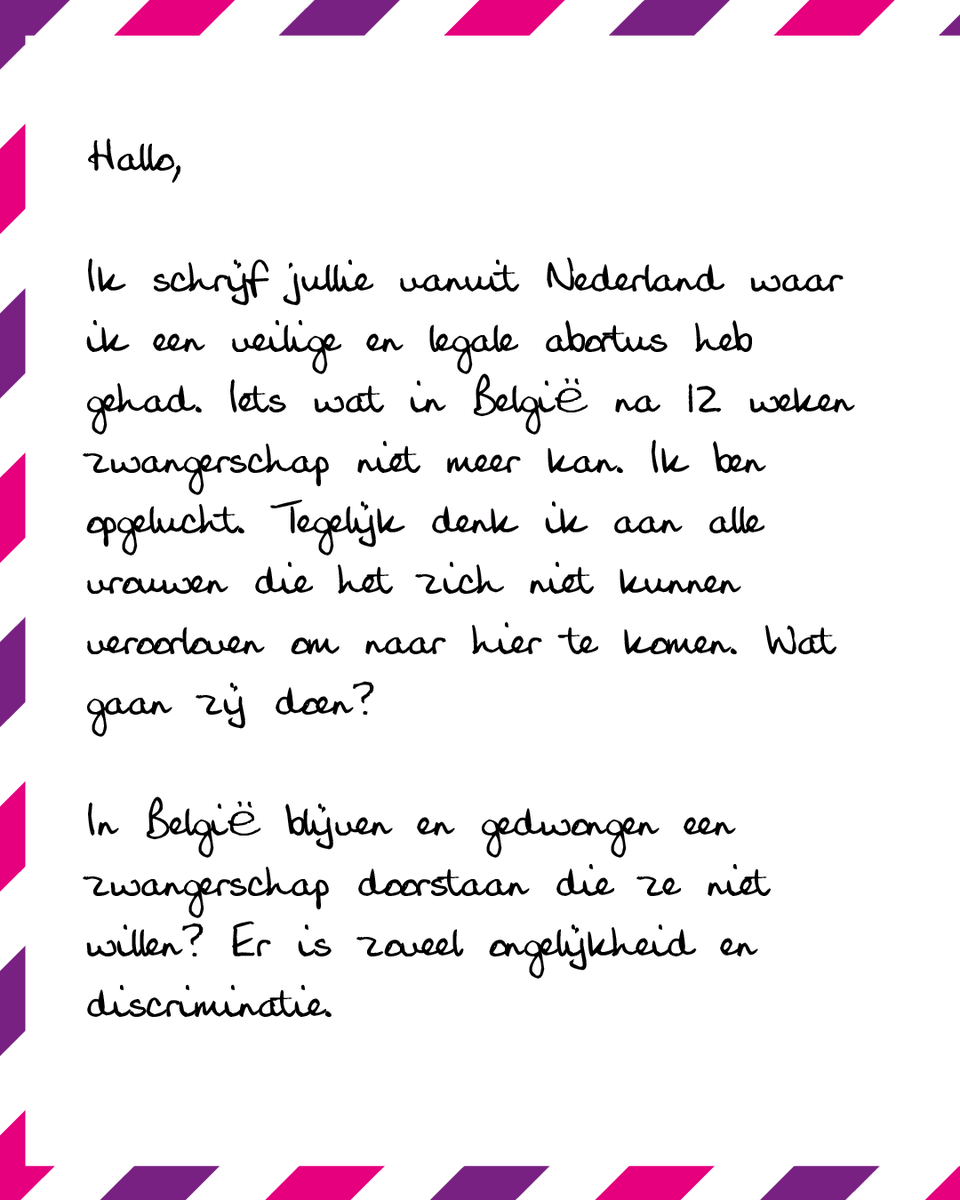 Hallo,
Ik schrijf jullie vanuit Nederland waar
ik een veilige en legale abortus heb
gehad. Iets wat in België na 12 weken
zwangerschap niet meer kan. Ik ben
opgelucht. Tegelijk denk ik aan alle
vrouwen die het zich niet kunnen
veroorloven om naar hier te komen. Wat
gaan zij doen?
In België blijven en gedwongen een
zwangerschap doorstaan die ze niet
willen? Er is zoveel ongelijkheid en
discriminatie.